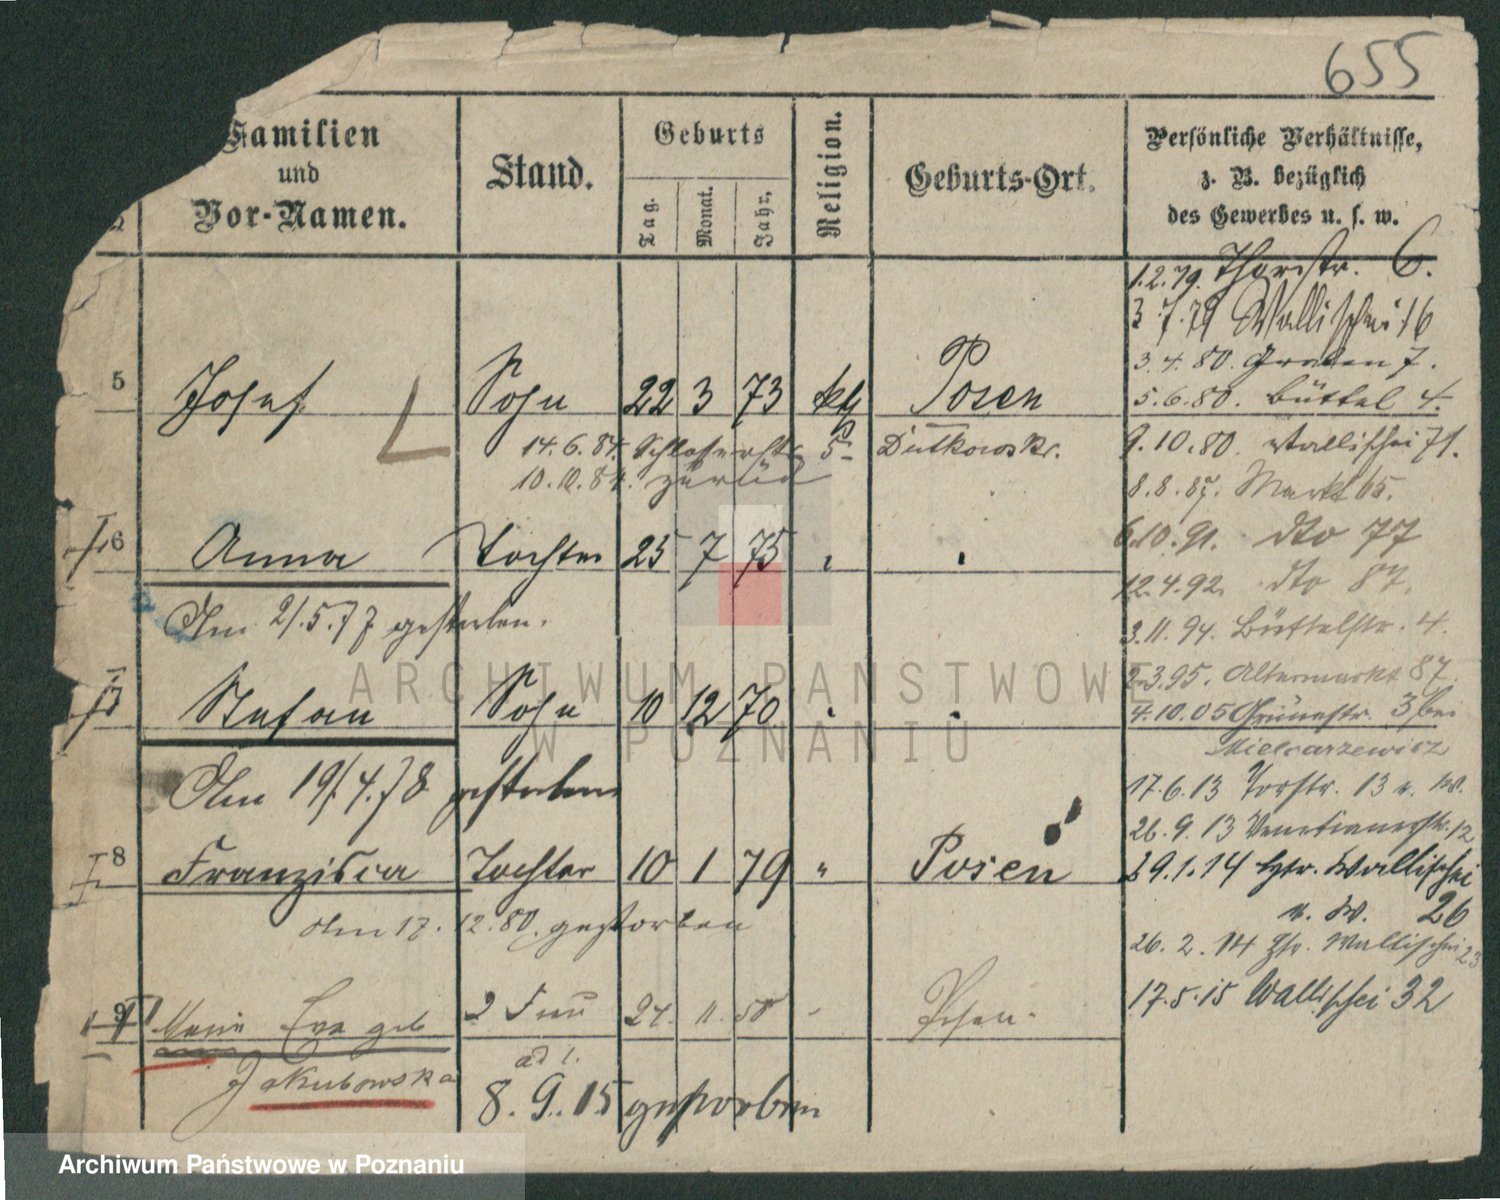 655
Familien
und
Vor-Namen.
Stand.
Geburts
Tag.
Monat.
Jahr.
Religion.
Geburts-Ort.
Persönliche Verhältnisse,
z. B. bezüglich
des Gewerbes u. s. w.
1.2.79. Thorstr. 6.
3.7.79 Wallischei 16
3.4.80. Graben 7.
5 Josef Sohn 22 3 73 kth Posen
5.6.80. Büttel 4.
14.6.84. Schlosserstr 5 Dutkowski.
9.10.80. Wallischei 71.
10.10.84. zurück
8.8.87. Markt 65.
6 Anna Tochter 25 7 75
6.10.91. dto 77
12.4.92. dto 87.
Am 21.5.77 gestorben.
3.11.94. Büttelstr. 4.
2.3.95. Altermarkt 87.
7 Stefan Sohn 10 12 70
4.10.05 Grünestr. 3 bei
Mielcarzewicz
Am 19/4.78 gestorben
17.6.13 Torstr. 13 v. W.
26.9.13 Venetianerstr. 12
8 Franzisca Tochter 10 1 79 " Posen
29.1.14 Wallischei
v. W. 26
am 17.12.80. gestorben
26.2.14 Wallischei 23
17.5.15 Wallischei 32
9 Marie Eva geb 2 Frau 24. 11. 58 - Posen.
Jakubowska
ad 1.
8.9.15 gestorben
ARCHIWUM PAŃSTWOWE
W POZNANIU
Archiwum Państwowe w Poznaniu